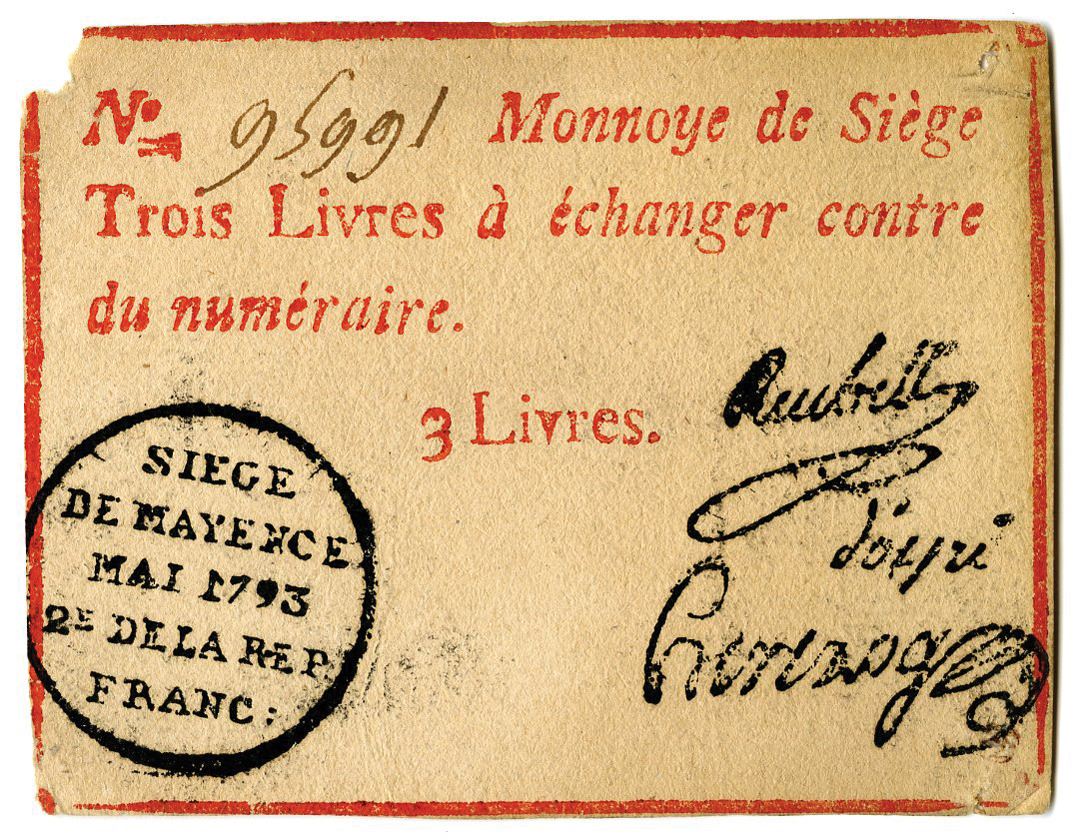 No. 95991 Monnoye de Siège
Trois Livres à échanger contre
du numéraire.
3 Livres.
SIEGE
DE MAYENCE
MAI 1793
2E DE LA REP
FRANC:
Reubell